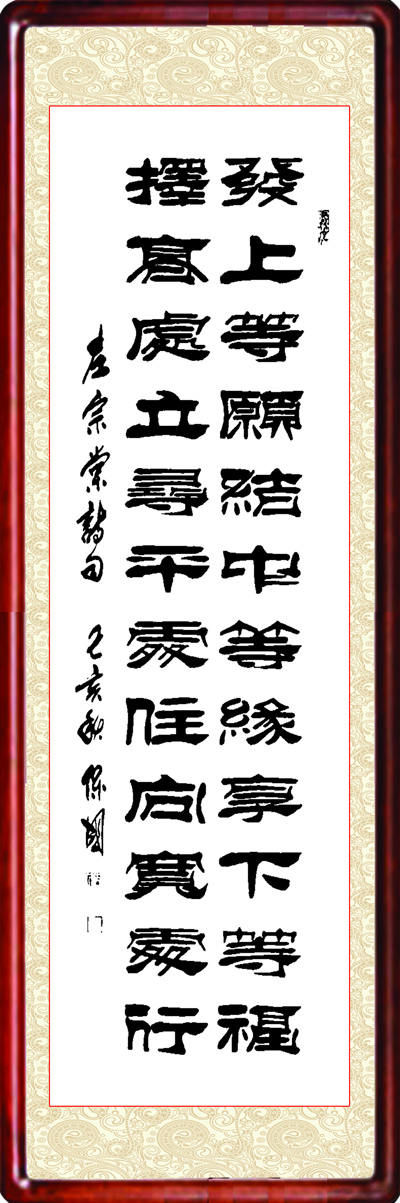 發上等願結中等緣享下等福
擇高處立尋平處住向寬處行
左宗棠詩句 乙亥秋 保國